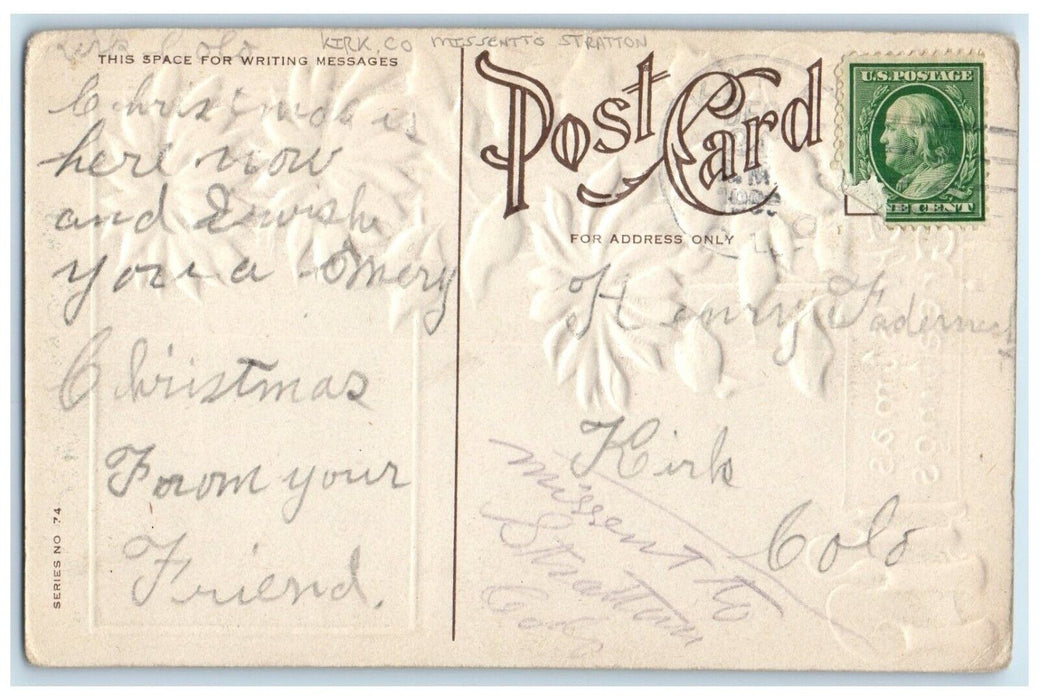 Kirk Colo
KIRK, CO MISSENT TO STRATTON
THIS SPACE FOR WRITING MESSAGES
Christmas is
here now
and I wish
you a Mery
Christmas
From your
Friend.
SERIES NO 74
Post Card
U.S. POSTAGE
CENT
FOR ADDRESS ONLY
Henry
Kirk
Colo
missent to
Stratton
Colo